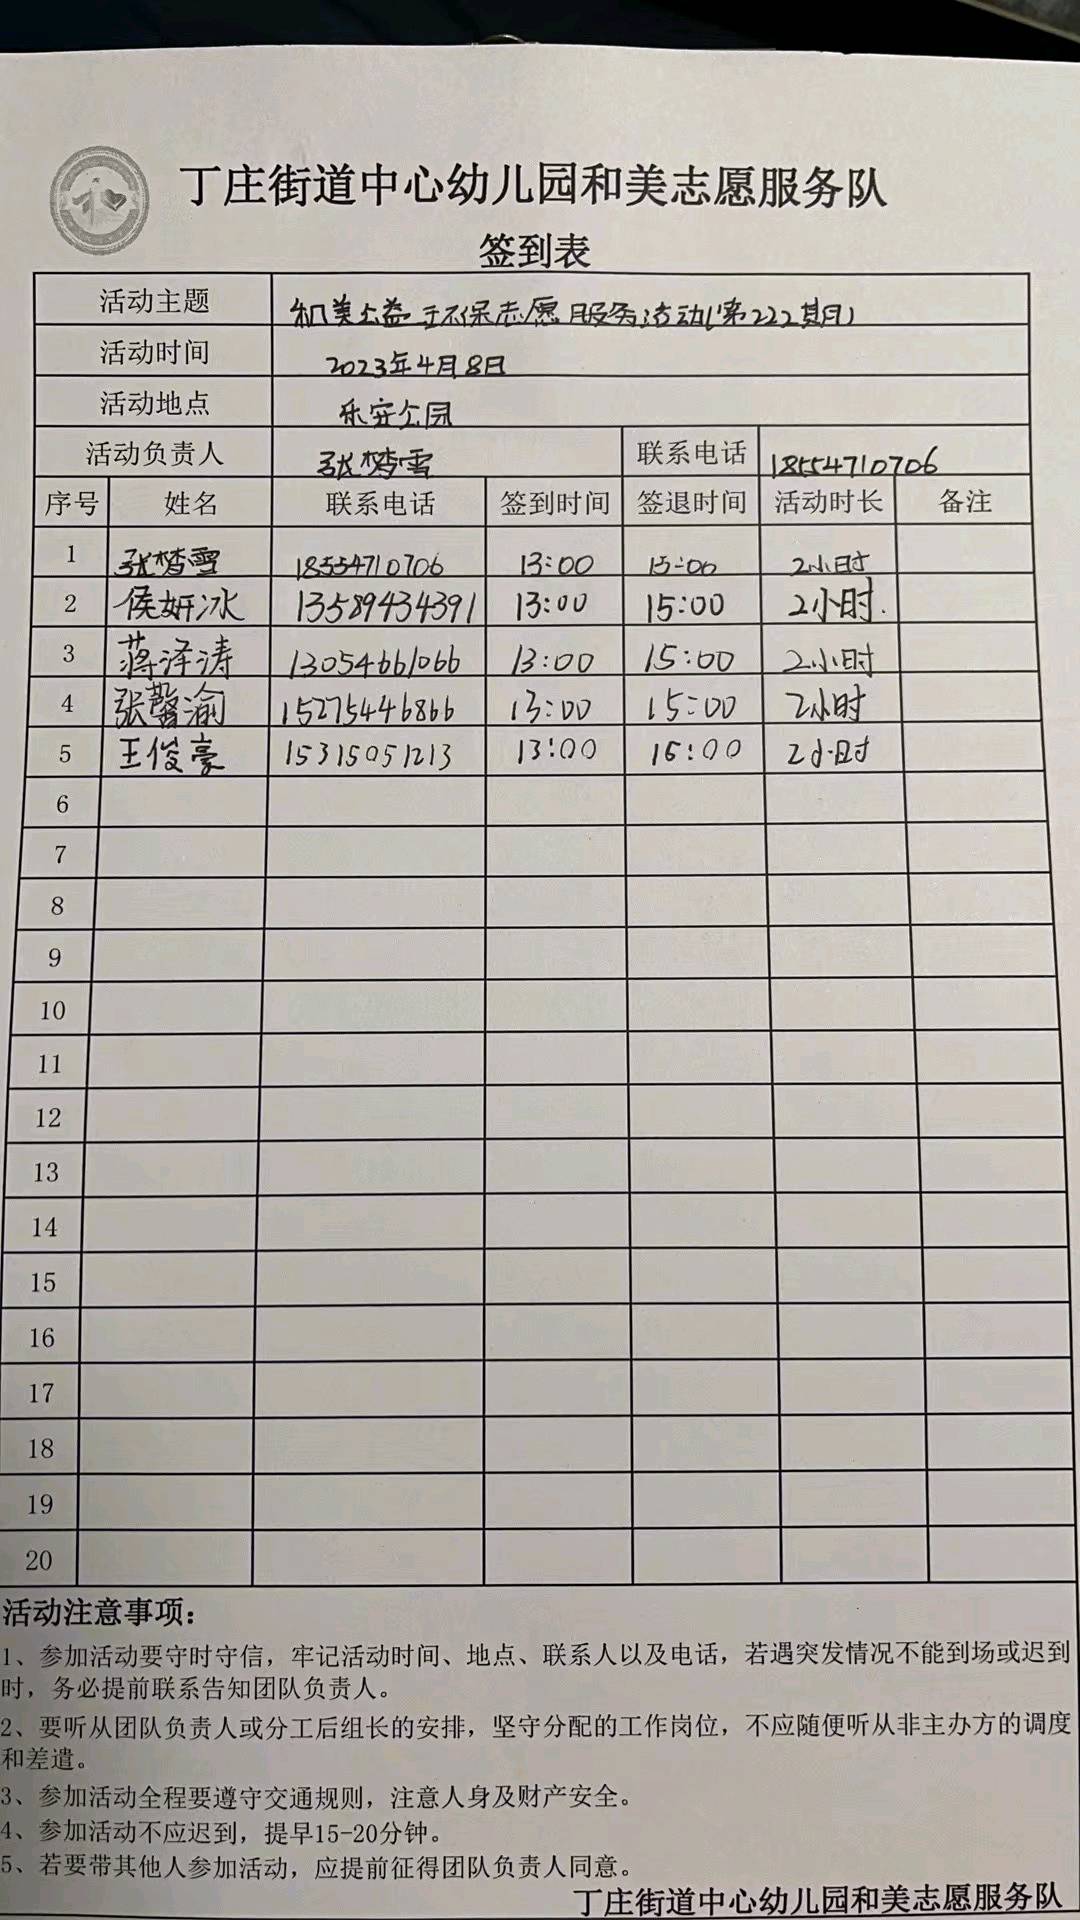 丁庄街道中心幼儿园和美志愿服务队
签到表
活动主题 和美公益 环保志愿服务活动(第222期)
活动时间 2023年4月8日
活动地点 乐安公园
活动负责人 张梦雪 联系电话 18554710706
序号 姓名 联系电话 签到时间 签退时间 活动时长 备注
1 张梦雪 18554710706 13:00 15:00 2小时
2 侯妍冰 13589434391 13:00 15:00 2小时.
3 蒋泽涛 13054661066 13:00 15:00 2小时
4 张馨渝 15275446866 13:00 15:00 2小时
5 王俊豪 15315051213 13:00 15:00 2小时
6
7
8
9
10
11
12
13
14
15
16
17
18
19
20
活动注意事项：
1、参加活动要守时守信，牢记活动时间、地点、联系人以及电话，若遇突发情况不能到场或迟到
时，务必提前联系告知团队负责人。
2、要听从团队负责人或分工后组长的安排，坚守分配的工作岗位，不应随便听从非主办方的调度
和差遣。
3、参加活动全程要遵守交通规则，注意人身及财产安全。
4、参加活动不应迟到，提早15-20分钟。
5、若要带其他人参加活动，应提前征得团队负责人同意。
丁庄街道中心幼儿园和美志愿服务队